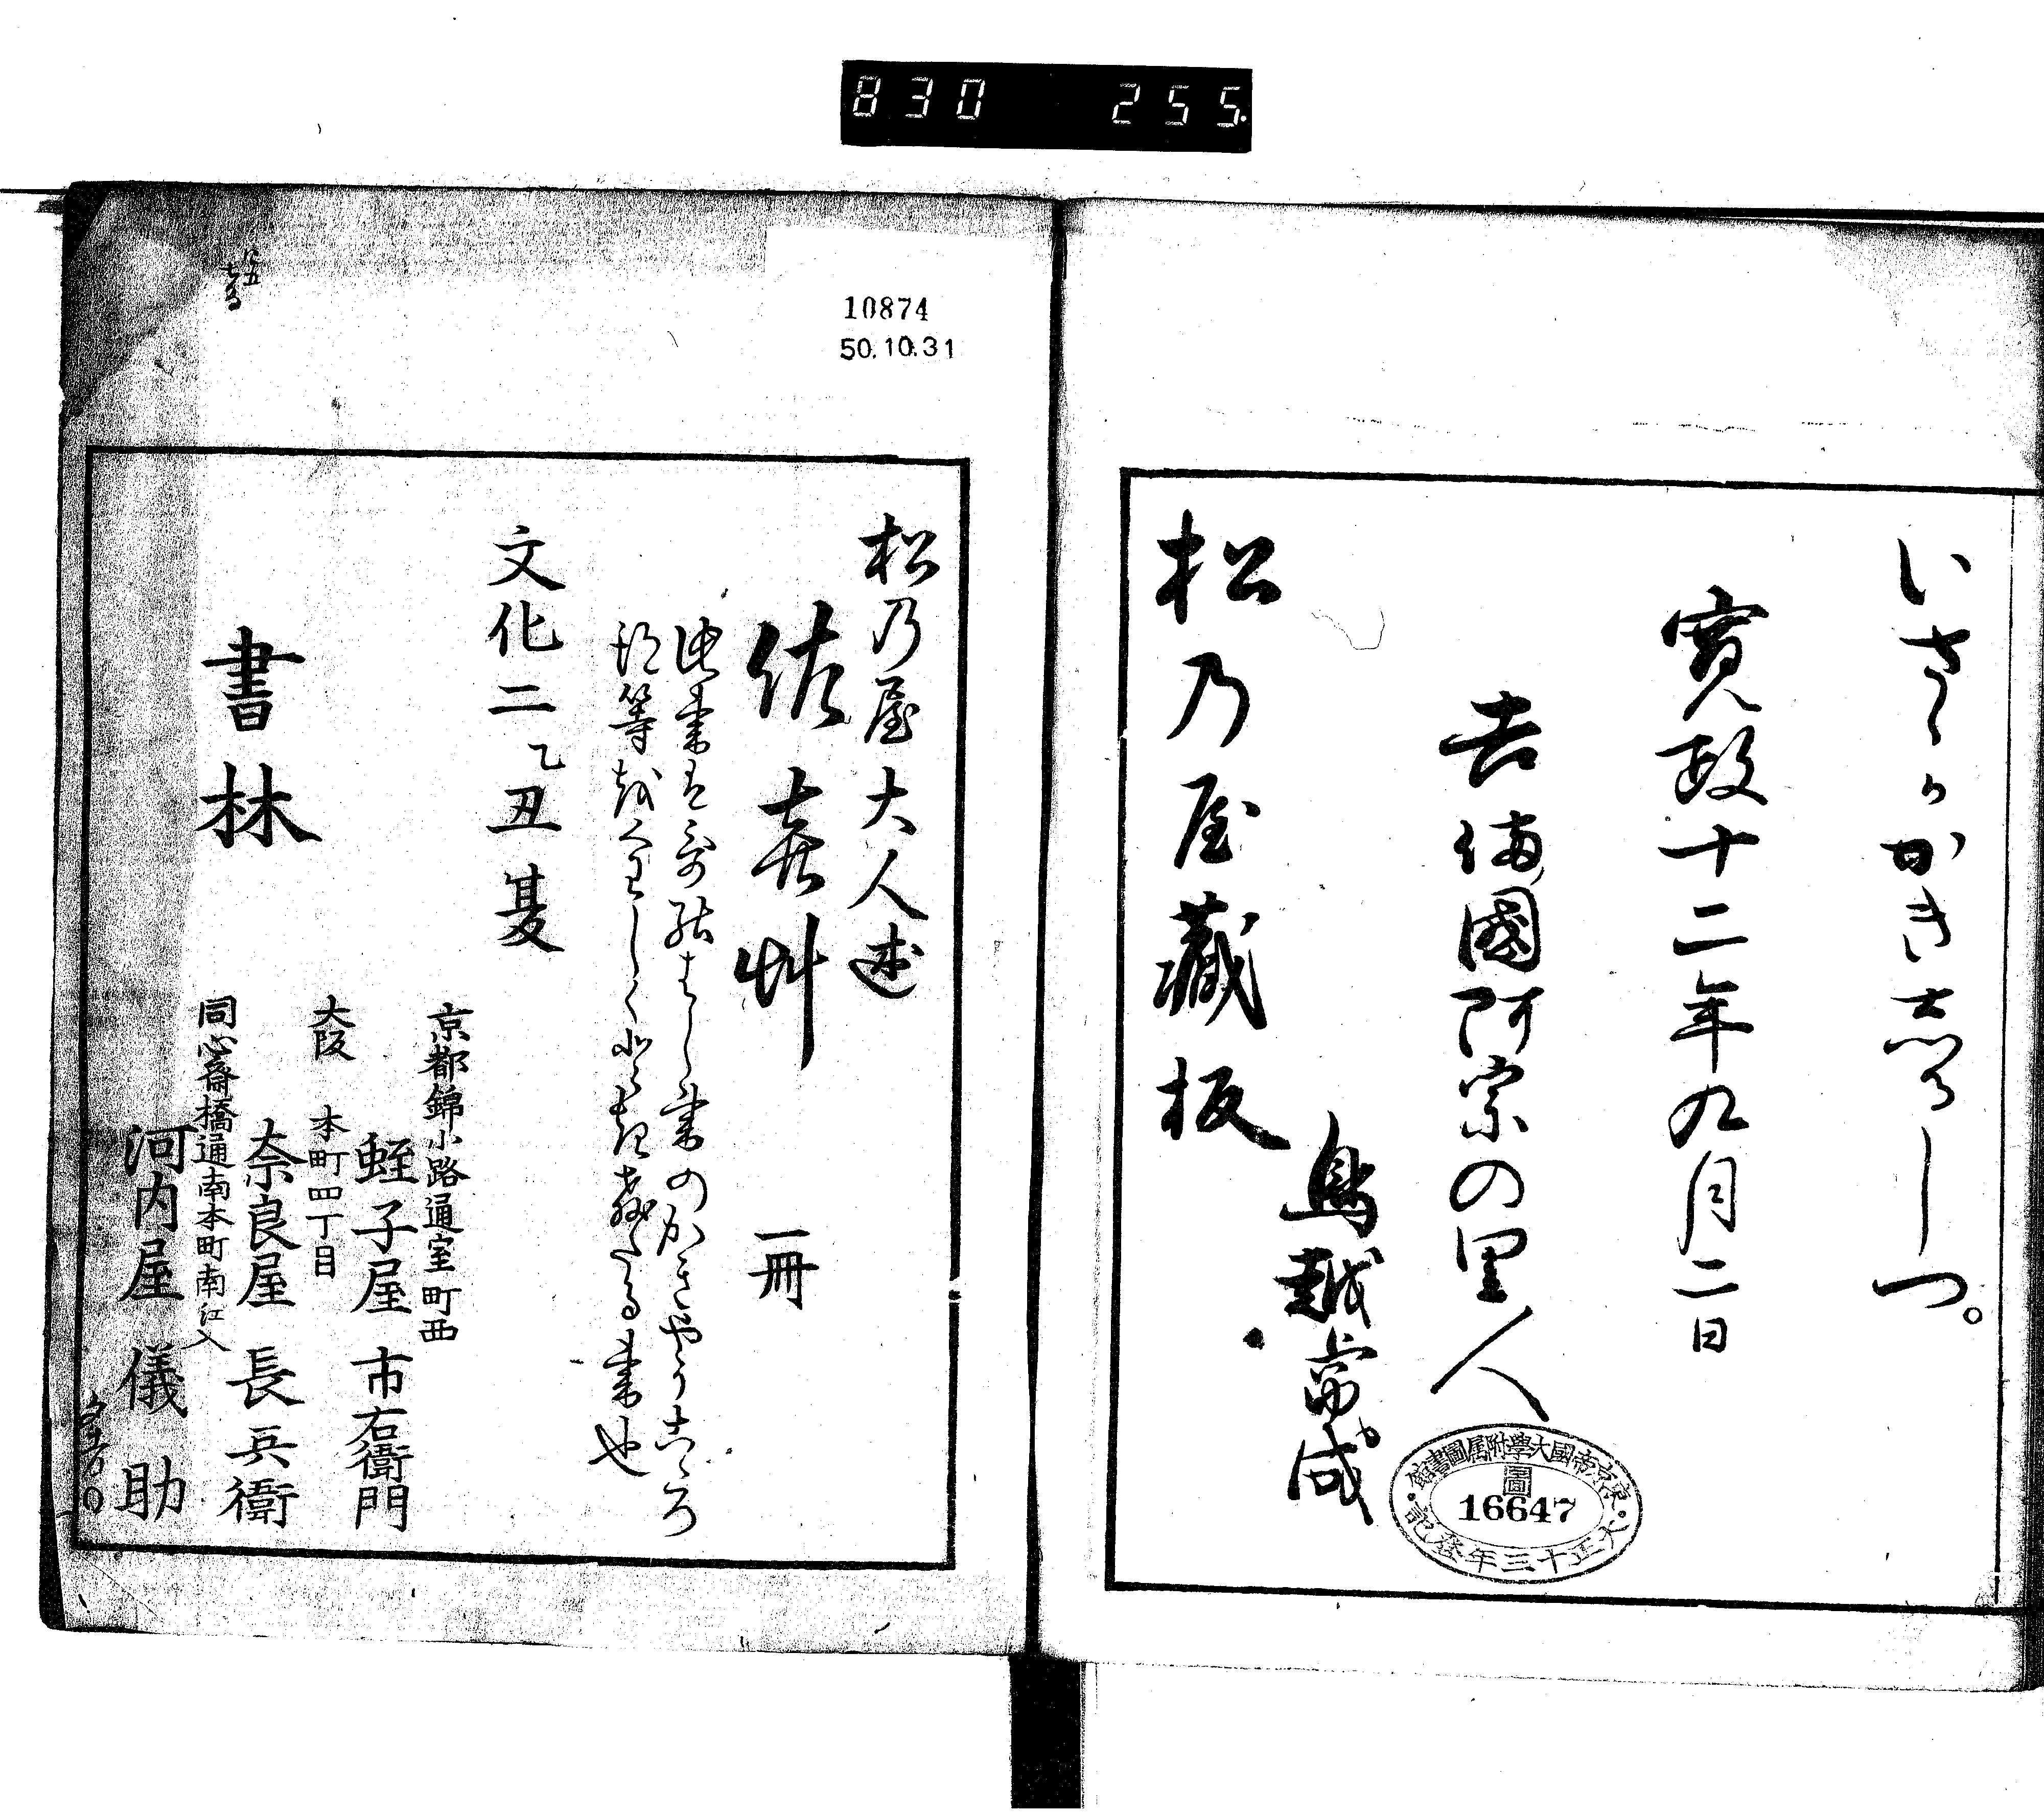 830 255.
いさゝかかき志るしつ。
寛政十二年九月二日
吉備國阿宗の里人
鳥越常成
松乃屋藏板
東京帝國大學附属圖書館
圖
16647
大正十三年登記
10874
50.10.31
松乃屋大人述
佐喜艸 一冊
此書は哥結はし書のかきやうこゝろ
得等
書也
文化二乙丑夏
書林
京都錦小路通室町西
蛭子屋市右衛門
大阪 本町四丁目
奈良屋長兵衛
同心齋橋通南本町南江入
河内屋儀助